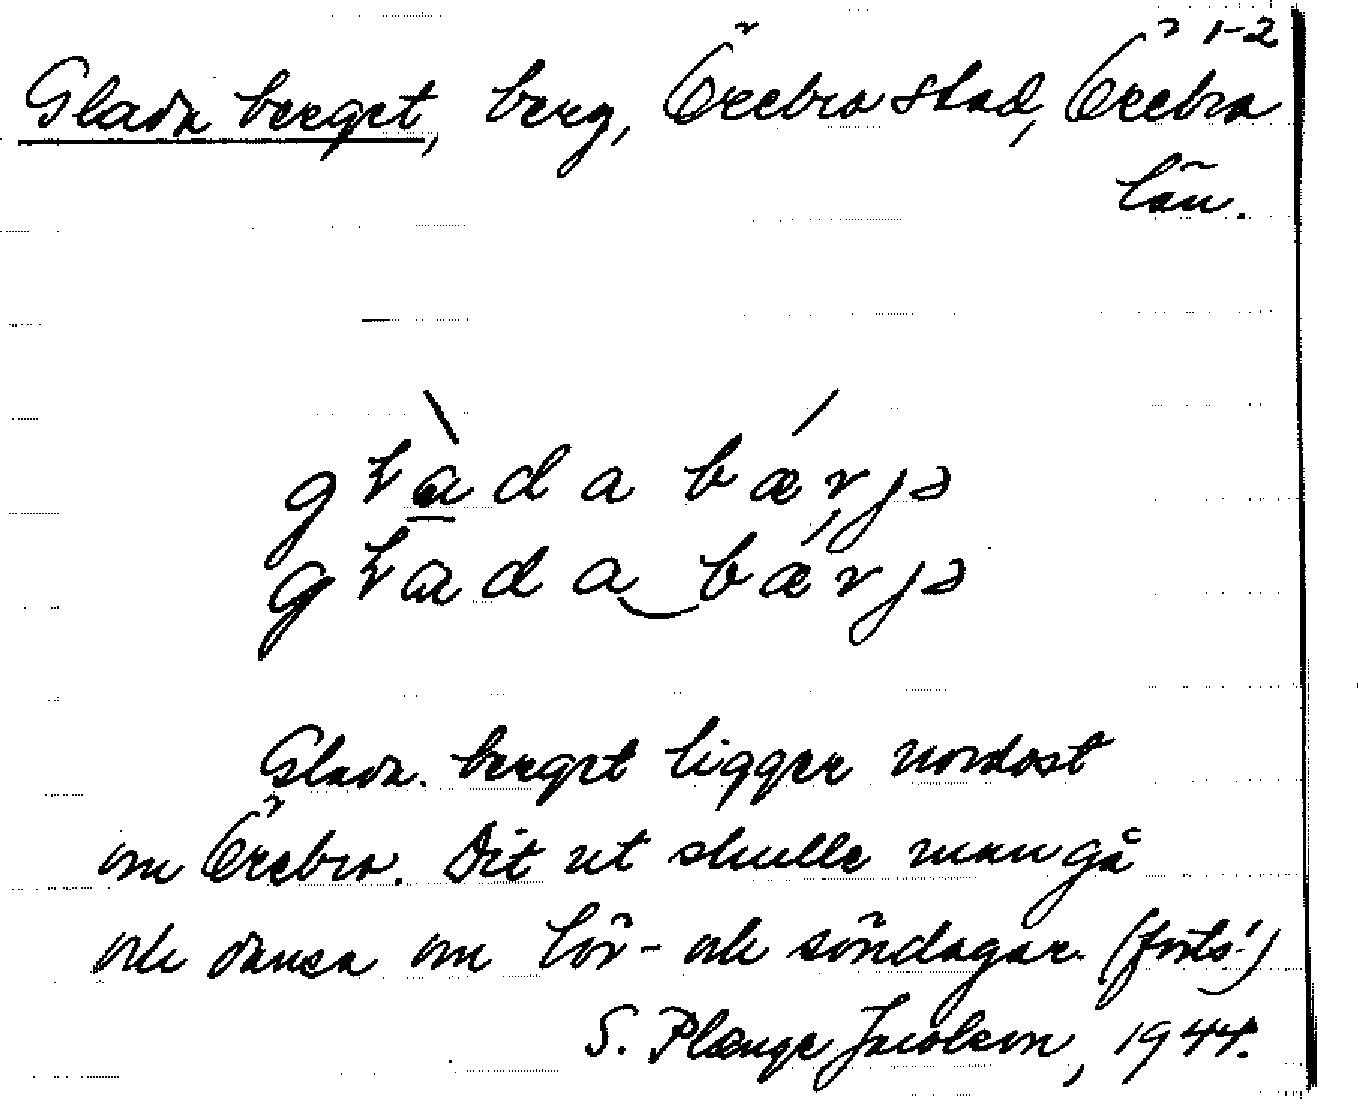 1-2
Glada berget, berg, Örebro stad, Örebro
län.
gƚàda bærjə
gƚada‿bærjə
Glada berget ligger nordost
om Örebro. Dit ut skulle man gå
och dansa om lör- och söndagar. (forts.!)
S. Plænge Jacobson, 1944.